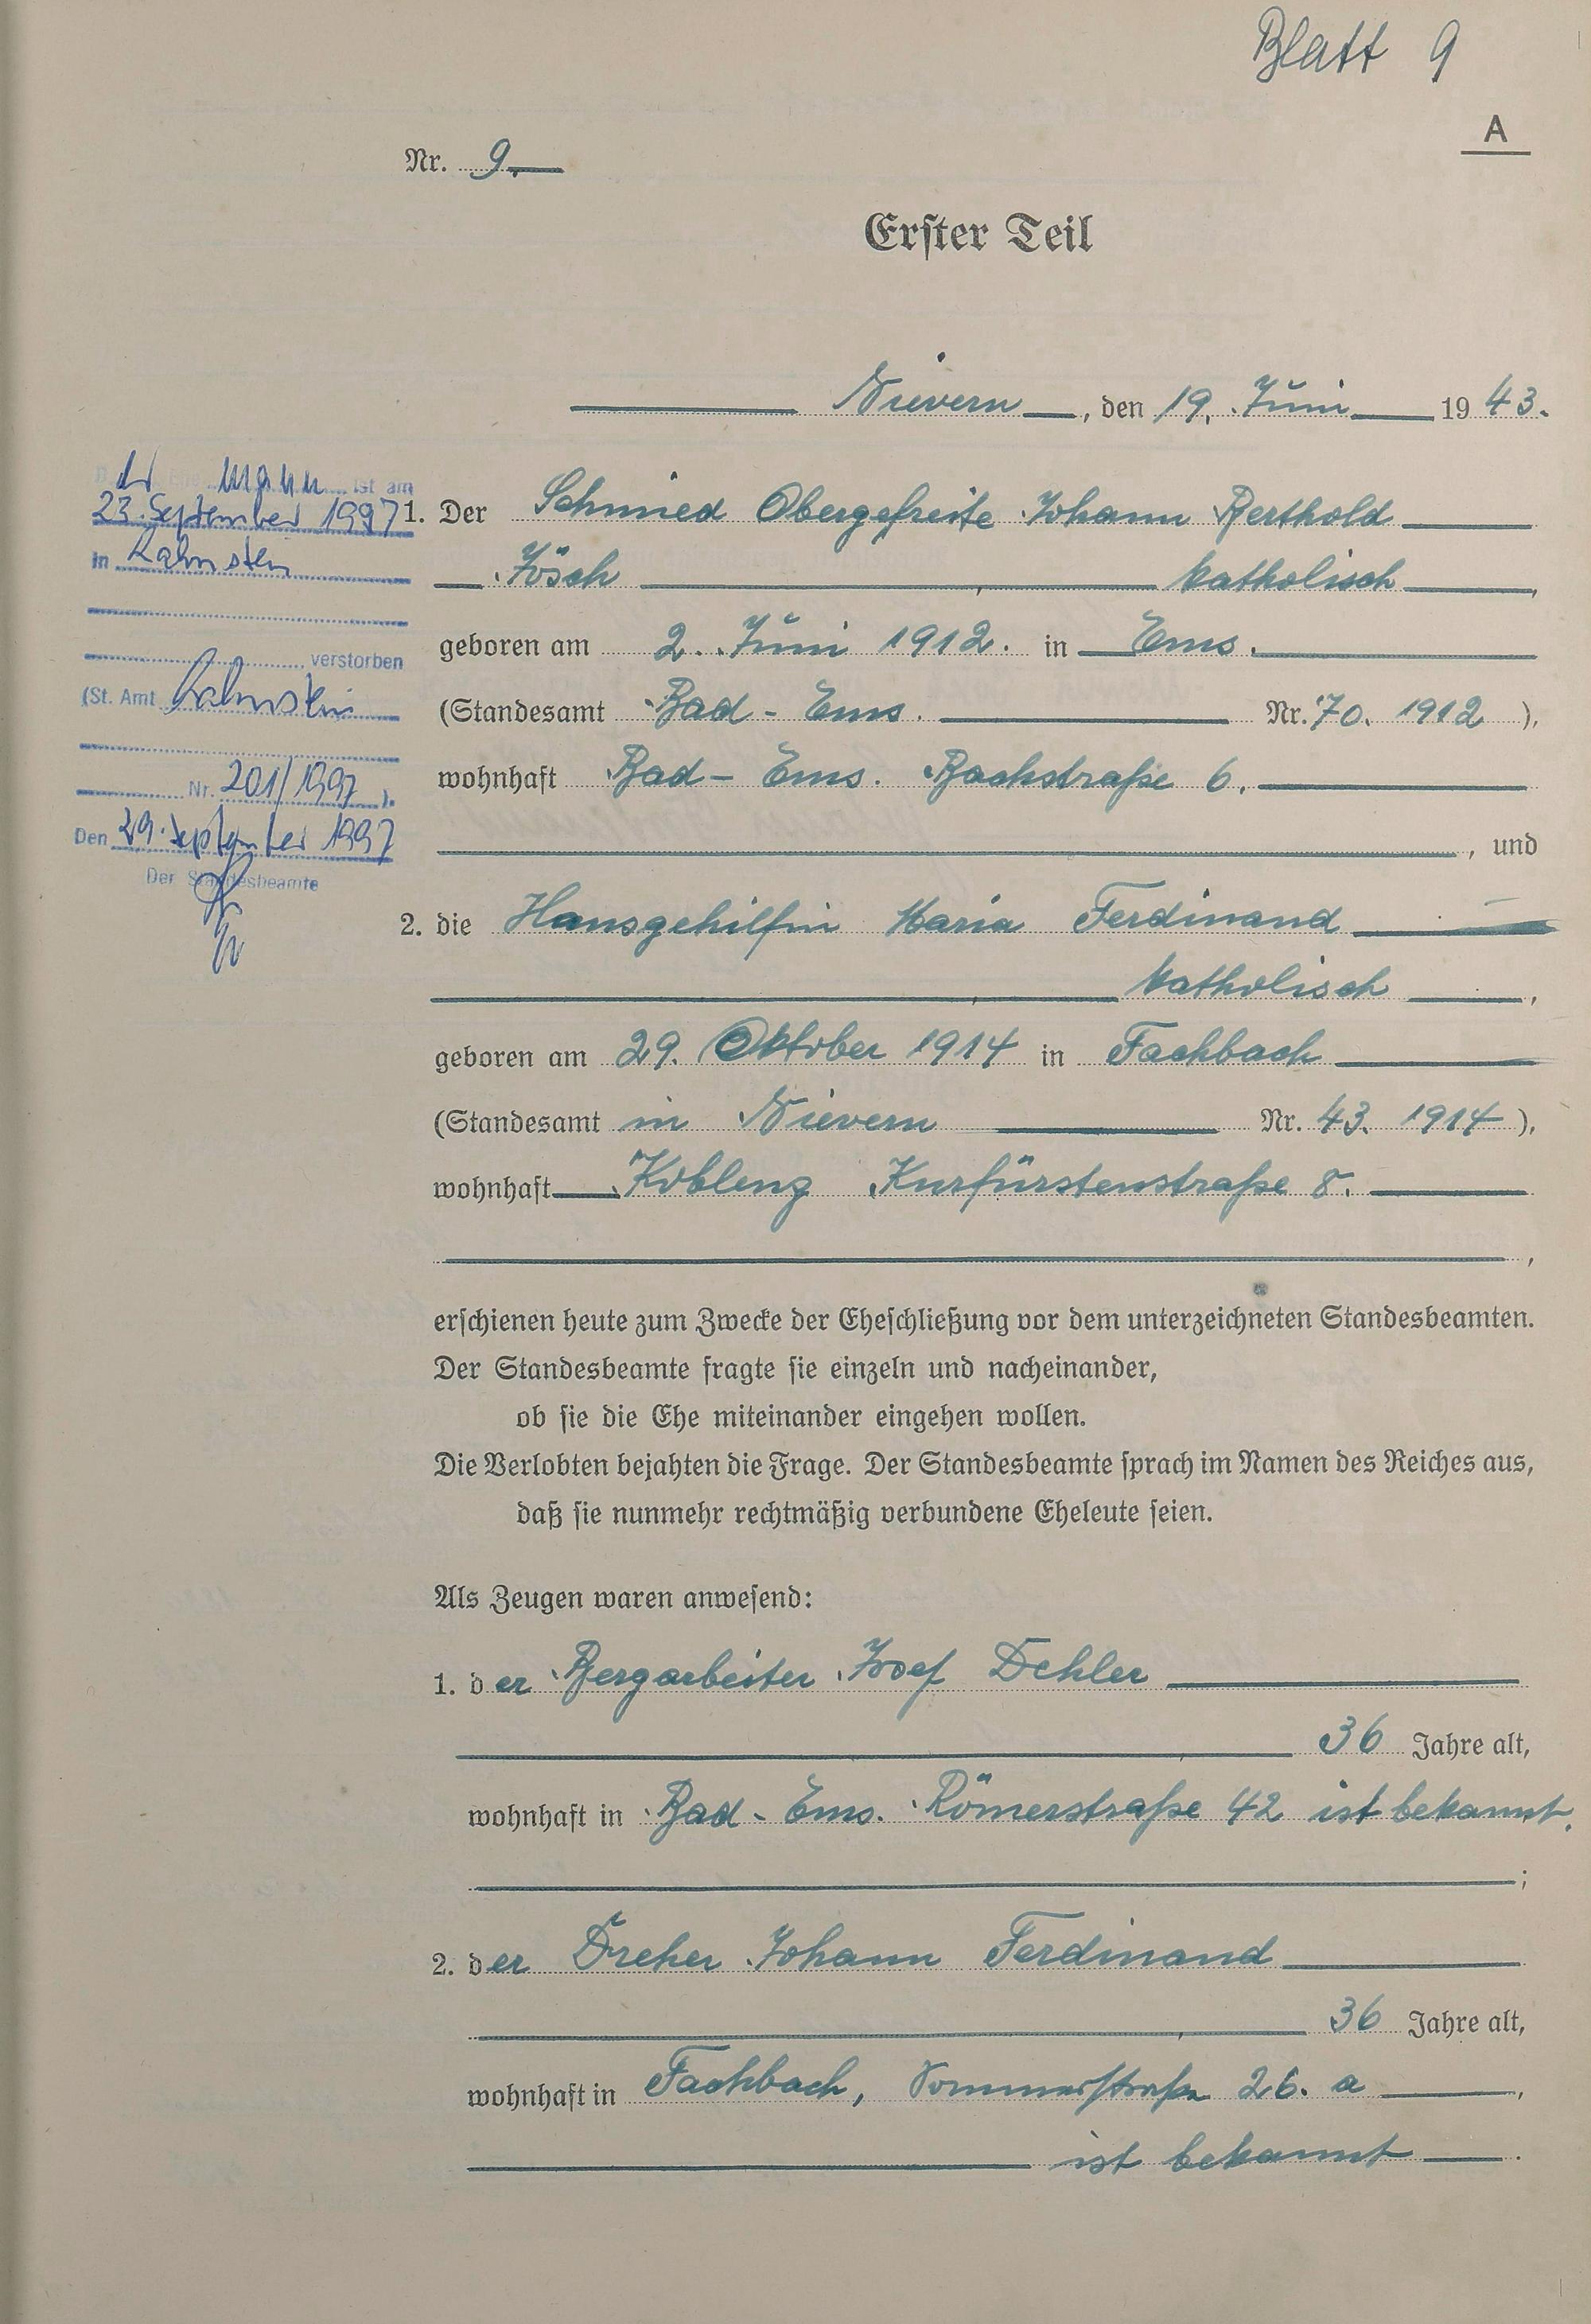 Blatt 9
A
Nr. 9.
Erster Teil
Nievern, den 19. Juni 1943.
ist am
23. September 1997
in Lahnstein
verstorben
(St. Amt Lahnstein
Nr. 201/1997 ).
Den 29. September 1997
Der Standesbeamte
1. Der Schmied Obergefreite Johann Berthold
Jösch katholisch,
geboren am 2. Juni 1912. in Ems.
(Standesamt Bad-Ems. Nr. 70. 1912 ),
wohnhaft Bad-Ems. Bachstraße 6.
, und
2. die Hausgehilfin Maria Ferdinand
katholisch,
geboren am 29. Oktober 1914 in Fachbach
(Standesamt in Nievern Nr. 43. 1914 ),
wohnhaft Koblenz Kurfürstenstraße 8.
,
erschienen heute zum Zwecke der Eheschließung vor dem unterzeichneten Standesbeamten.
Der Standesbeamte fragte sie einzeln und nacheinander,
ob sie die Ehe miteinander eingehen wollen.
Die Verlobten bejahten die Frage. Der Standesbeamte sprach im Namen des Reiches aus,
daß sie nunmehr rechtmäßig verbundene Eheleute seien.
Als Zeugen waren anwesend:
1. der Bergarbeiter Josef Dehler
36 Jahre alt,
wohnhaft in Bad-Ems. Römerstraße 42 ist bekannt.
;
2. der Dreher Johann Ferdinand
36 Jahre alt,
wohnhaft in Fachbach, 26. a,
ist bekannt.